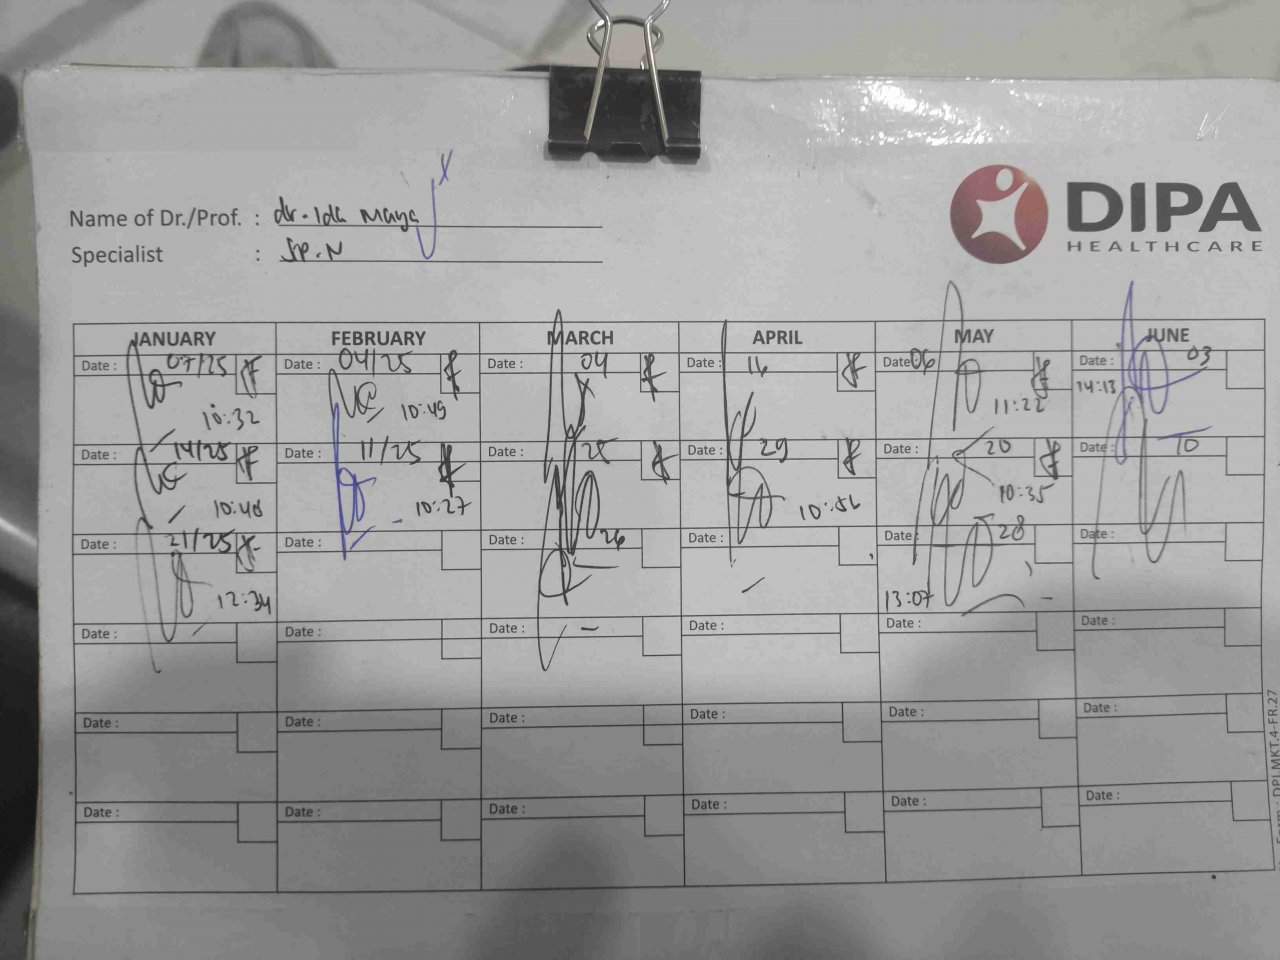 DIPA
HEALTHCARE
Name of Dr./Prof. : dr. Ida Maya
Specialist : Sp.N
JANUARY FEBRUARY MARCH APRIL MAY JUNE
Date : 07/25 Date : 04/25 Date : 04 Date : 16 Date : 06 Date : 03
10:32 10:49 11:22 14:13
Date : 14/25 Date : 11/25 Date : 25 Date : 29 Date : 20 Date : 10
10:48 10:27 10:56 10:35
Date : 21/25 Date : Date : 26 Date : Date : 28 Date :
12:34 13:07
Date : Date : Date : Date : Date : Date :
Date : Date : Date : Date : Date : Date :
Date : Date : Date : Date : Date : Date :
Form : DPI.MKT.4-FR.27